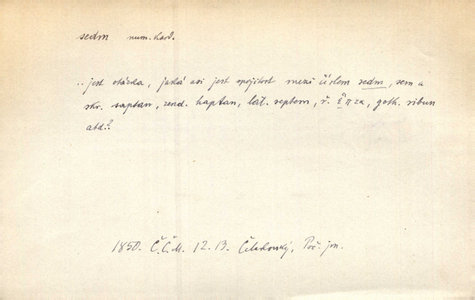 sedm num. kard.
..jest otázka, jaká asi jest spojitost mezi číslem sedm, sem a
skr. saptan, zend. haptan, lat. septem, ř. ἑπτα, goth. sibun
atd.?
1850. Č.Č.M. 12.13. Čelakovský, Poč. jm.